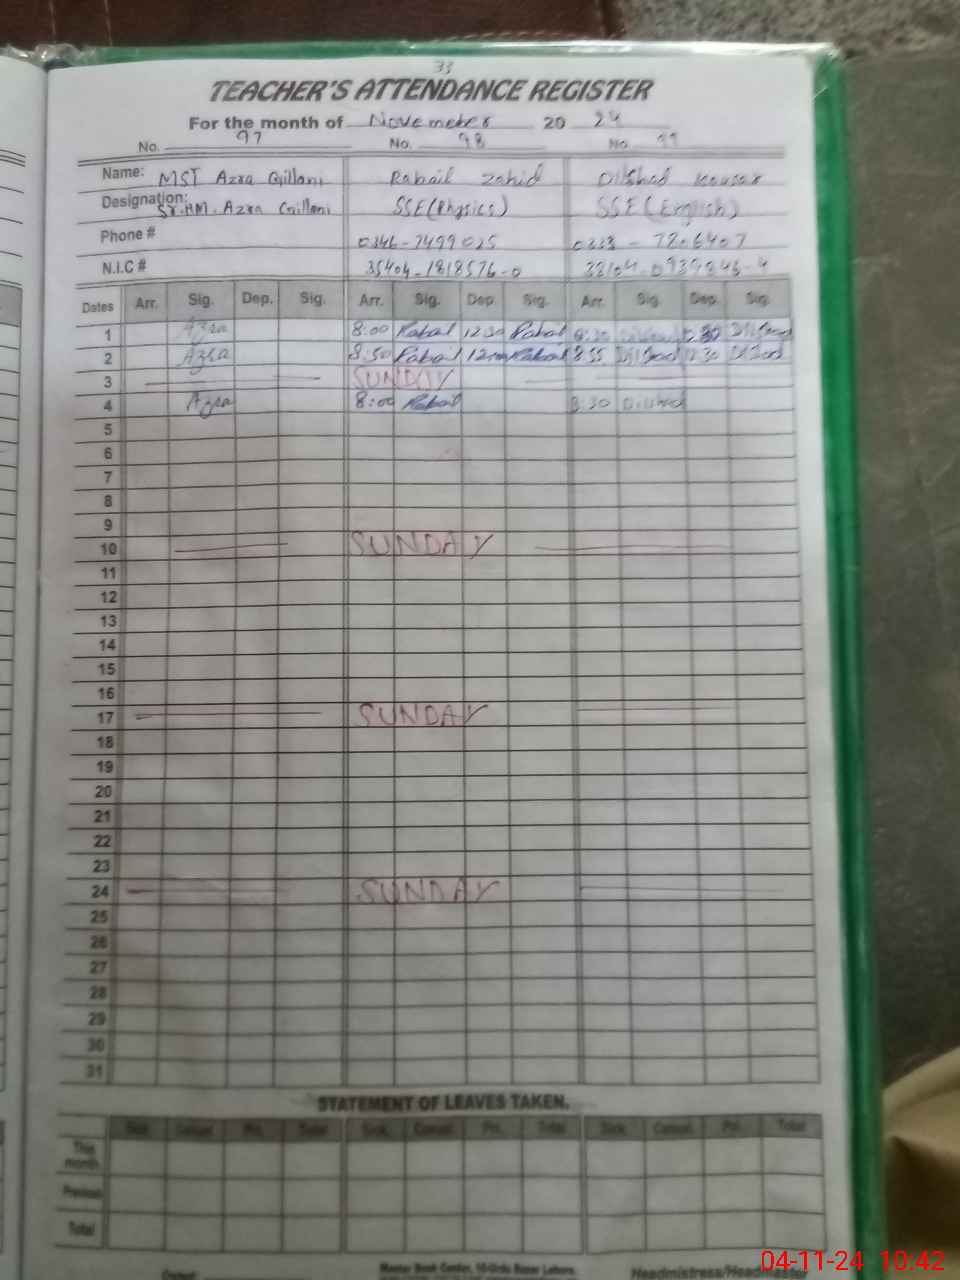 33
TEACHER'S ATTENDANCE REGISTER
For the month of Novemeber 20 24
No. 97 No. 98 No. 99
Name: MST Azra Gillani Rabail Zahid Dilshad Kousar
Designation: Sr.HM. Azra Gillani SSE(Physics) SSE(English)
Phone # 0346-7499025 0333-7206407
N.I.C # 35404-1818576-0
Dates Arr. Sig. Dep. Sig. Arr. Sig. Dep. Sig. Arr. Sig. Dep. Sig.
1 Azra 8:00 Rabail 12 30 Rabail 8:30
2 Azra 8:50 Rabail Rabail 8:55 12 30
3 SUNDAY
4 Azra 8:00 Rabail 8:30 Dilshad
5
6
7
8
9
10 SUNDAY
11
12
13
14
15
16
17 SUNDAY
18
19
20
21
22
23
24 SUNDAY
25
26
27
28
29
30
31
STATEMENT OF LEAVES TAKEN.
Sick. Casual. Pri. Total Sick. Casual. Pri. Total Sick. Casual. Pri. Total
This month
Previous
Total
Master Book Center, 10-Urdu Bazar Lahore.
Headmistress/Headmaster
04-11-24 10:42